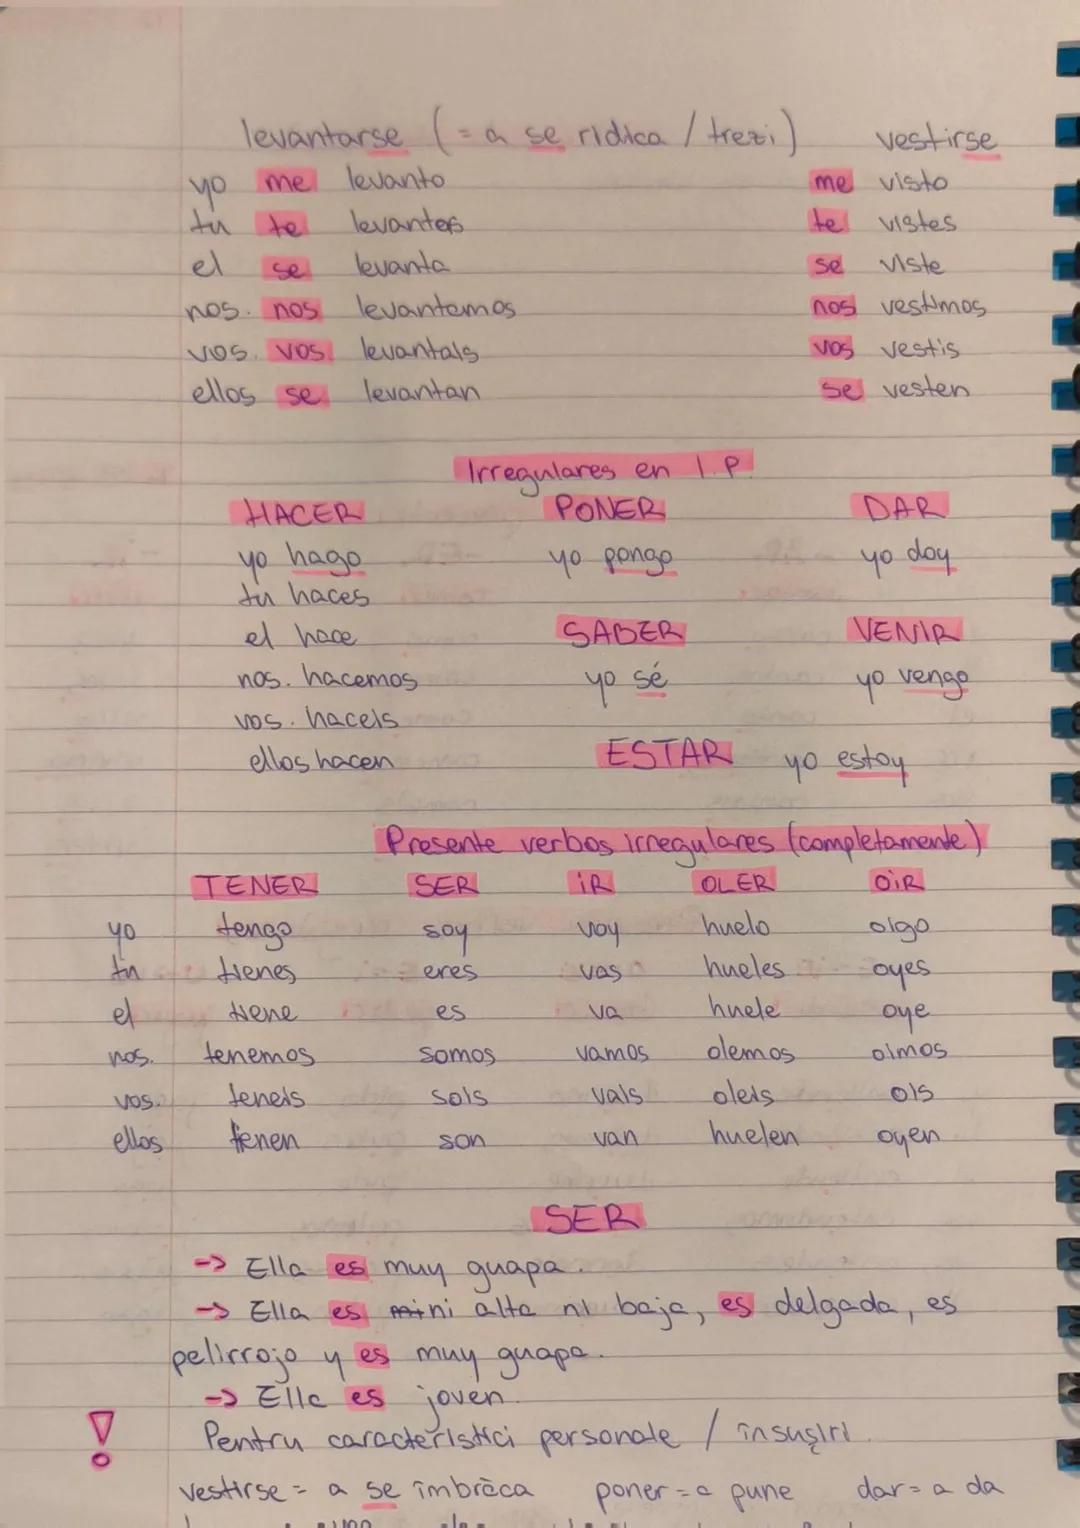 levantarse (= a se ridica / trezi) vestirse
yo me levanto me visto
tu te levantes te vistes
el se levanta se viste
nos. nos levantamos nos vestimos
vos. vos levantais vos vestis
ellos se levantan se vesten
Irregulares en I.P.
HACER PONER DAR
yo hago yo pongo yo doy
tu haces
el hace SABER VENIR
nos. hacemos yo sé yo vengo
vos. haceis
ellos hacen ESTAR yo estoy
Presente verbos irregulares (completamente)
TENER SER iR OLER OiR
yo tengo soy voy huelo oigo
tu tienes eres vas hueles oyes
el tiene es va huele oye
nos. tenemos somos vamos olemos oimos
vos. teneis sois vais oleis ois
ellos tienen son van huelen oyen
SER
-> Ella es muy guapa.
-> Ella es ni alta ni baja, es delgada, es
pelirrojo y es muy guapa.
-> Ella es joven.
! Pentru caracteristici personale / însușiri.
vestirse = a se îmbrăca poner = a pune dar = a da